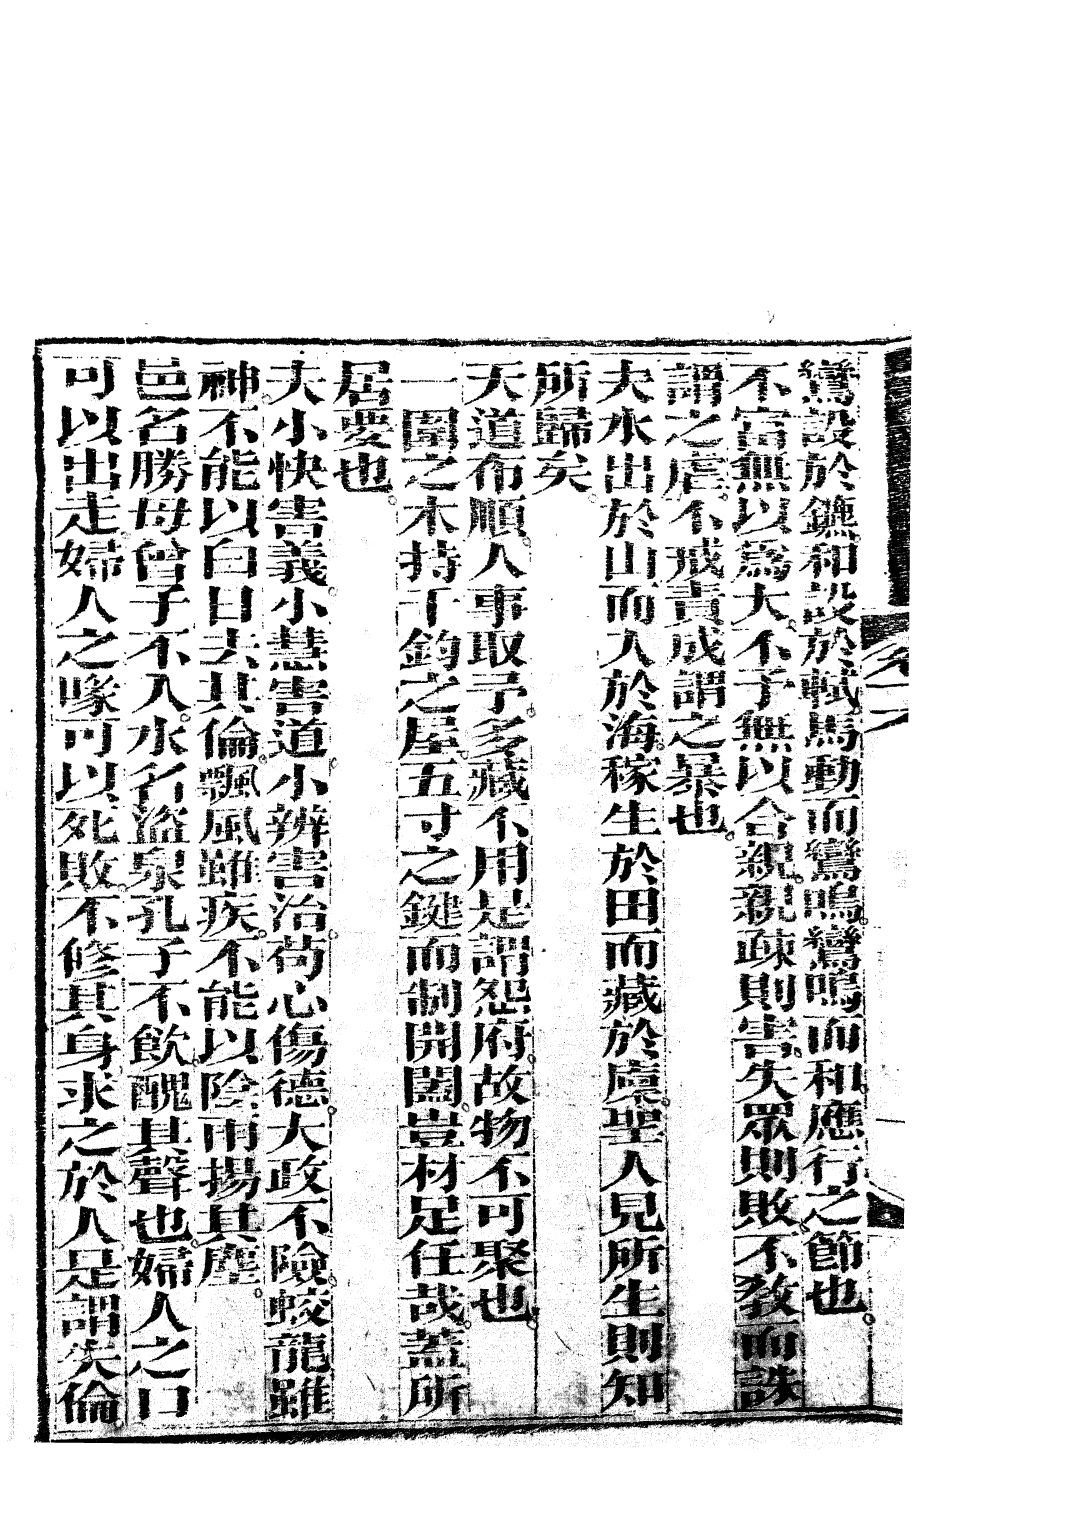 鸞設於鑣和設於軾馬動而鸞鳴鸞鳴而和應行之節也
不富無以爲大不予無以合親親疎則害失眾則敗不敎而誅
謂之虐不戒責成謂之暴也
夫水出於山而入於海稼生於田而藏於廩聖人見所生則知
所歸矣
天道布順人事取予多藏不用是謂怨府故物不可聚也
一圍之木持千鈞之屋五寸之鍵而制開闔豈材足任哉蓋所
居要也
夫小快害義小慧害道小辨害治苟心傷德大政不險蛟龍雖
神不能以白日去其倫飄風雖疾不能以陰雨揚其塵
邑名勝母曾子不入水名盜泉孔子不飲醜其聲也婦人之口
可以出走婦人之喙可以死敗不修其身求之於人是謂失倫